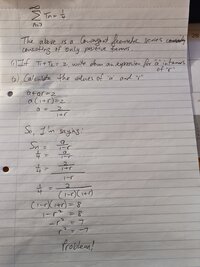 ∞
Σ Tn = 1/4
n=3
The above is a convergent geometric series
consisting of only positive terms.
(1) If T1 + T2 = 2, write down an expression for 'a' in terms
of 'r'.
(2) Calculate the values of 'a' and 'r'
a + ar = 2
a(1+r) = 2
a = 2/(1+r)
So, I'm saying:
S∞ = a/(1-r)
1/4 = a/(1-r)
1/4 = (2/(1+r))/(1-r)
1/4 = 2/((1-r)(1+r))
(1-r)(1+r) = 8
1-r² = 8
-r² = 7
r² = -7
Problem!